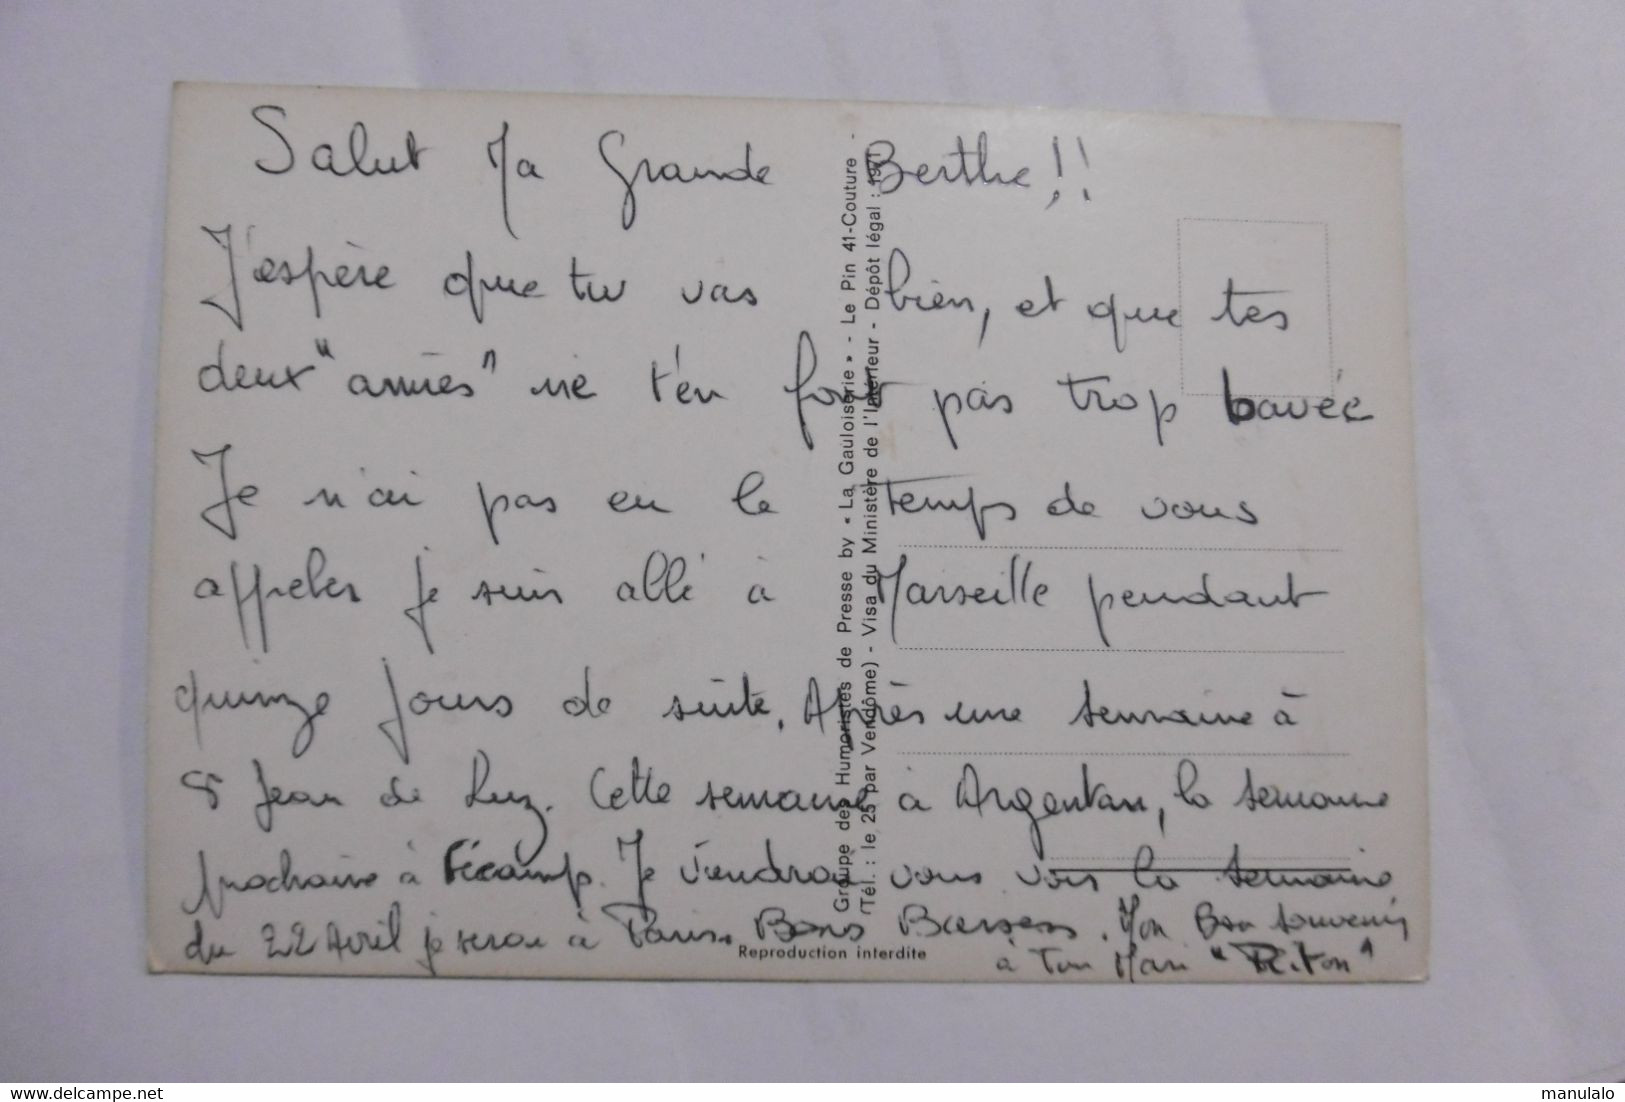 Salut Ma Grande Berthe!!
J'espère que tu vas bien, et que tes
deux "amies" ne t'en font pas trop bavée
Je n'ai pas eu le temps de vous
appeler je suis allé à Marseille pendant
quinze jours de suite. Après une semaine à
St Jean de Luz. Cette semaine à Argentan, la semaine
prochaine à Fécamp. Je viendrai vous voir la semaine
du 22 Avril je serai à Paris. Bons Baisers. Mon Bon souvenir
à Ton Mari "Riton"
Groupe des Humoristes de Presse by « La Gauloiserie » - Le Pin 41-Couture -
(Tél. : le 25 par Vendôme) - Visa du Ministère de l'Intérieur - Dépôt légal : 1971
Reproduction interdite
manulalo